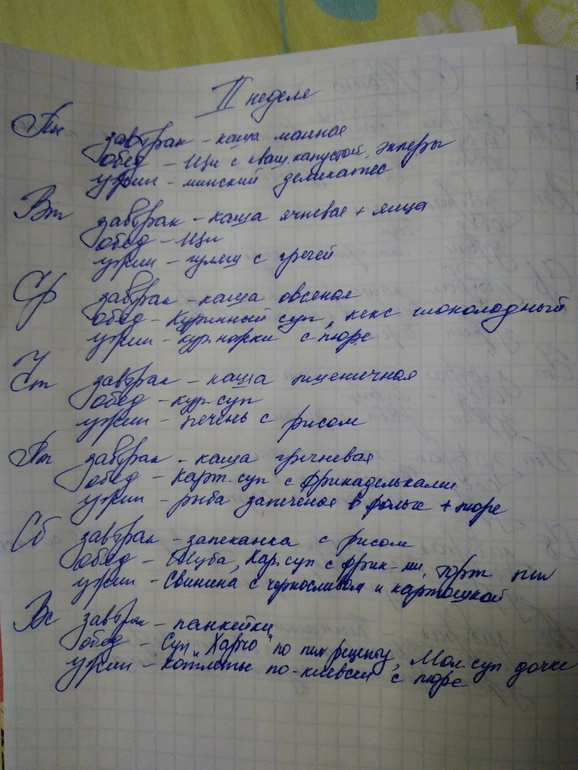 II неделя
Пн завтрак - каша манная
обед - Щи с кваш. капустой, эклеры
ужин - минский деликатес
Вт завтрак - каша ячневая + яйца
обед - Щи
ужин - гуляш с гречей
Ср завтрак - каша овсеная
обед - Куринный суп, кекс шоколадный
ужин - кур. ножки с пюре
Чт завтрак - каша пшеничная
обед - кур. суп
ужин - печень с рисом
Пт завтрак - каша гречневая
обед - карт. суп с фрикадельками
ужин - рыба запеченое в фольге + пюре
Сб завтрак - запеканка с рисом
обед - Шуба, Кар. суп с фрик-ми, торт
ужин - Свинина с черносливом и картошкой
Вс завтрак - панкейки
обед - Суп "Харчо" по рецепту, Мол. суп дочке
ужин - котлеты по-киевски с пюре